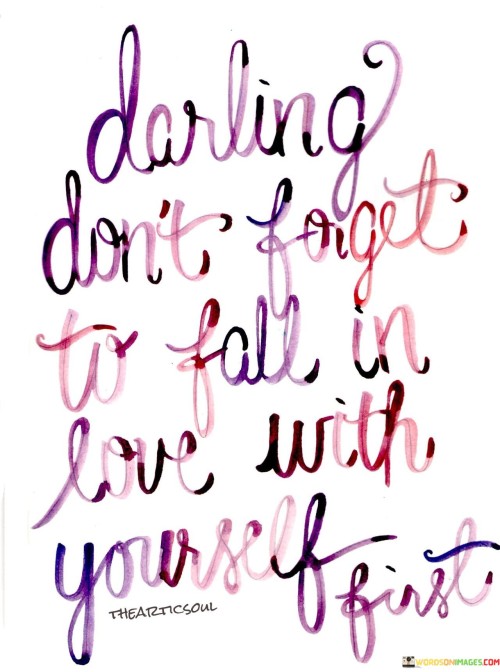 darling
don't forget
to fall in
love with
yourself first
THEARTICSOUL
WORDSONIMAGES.COM